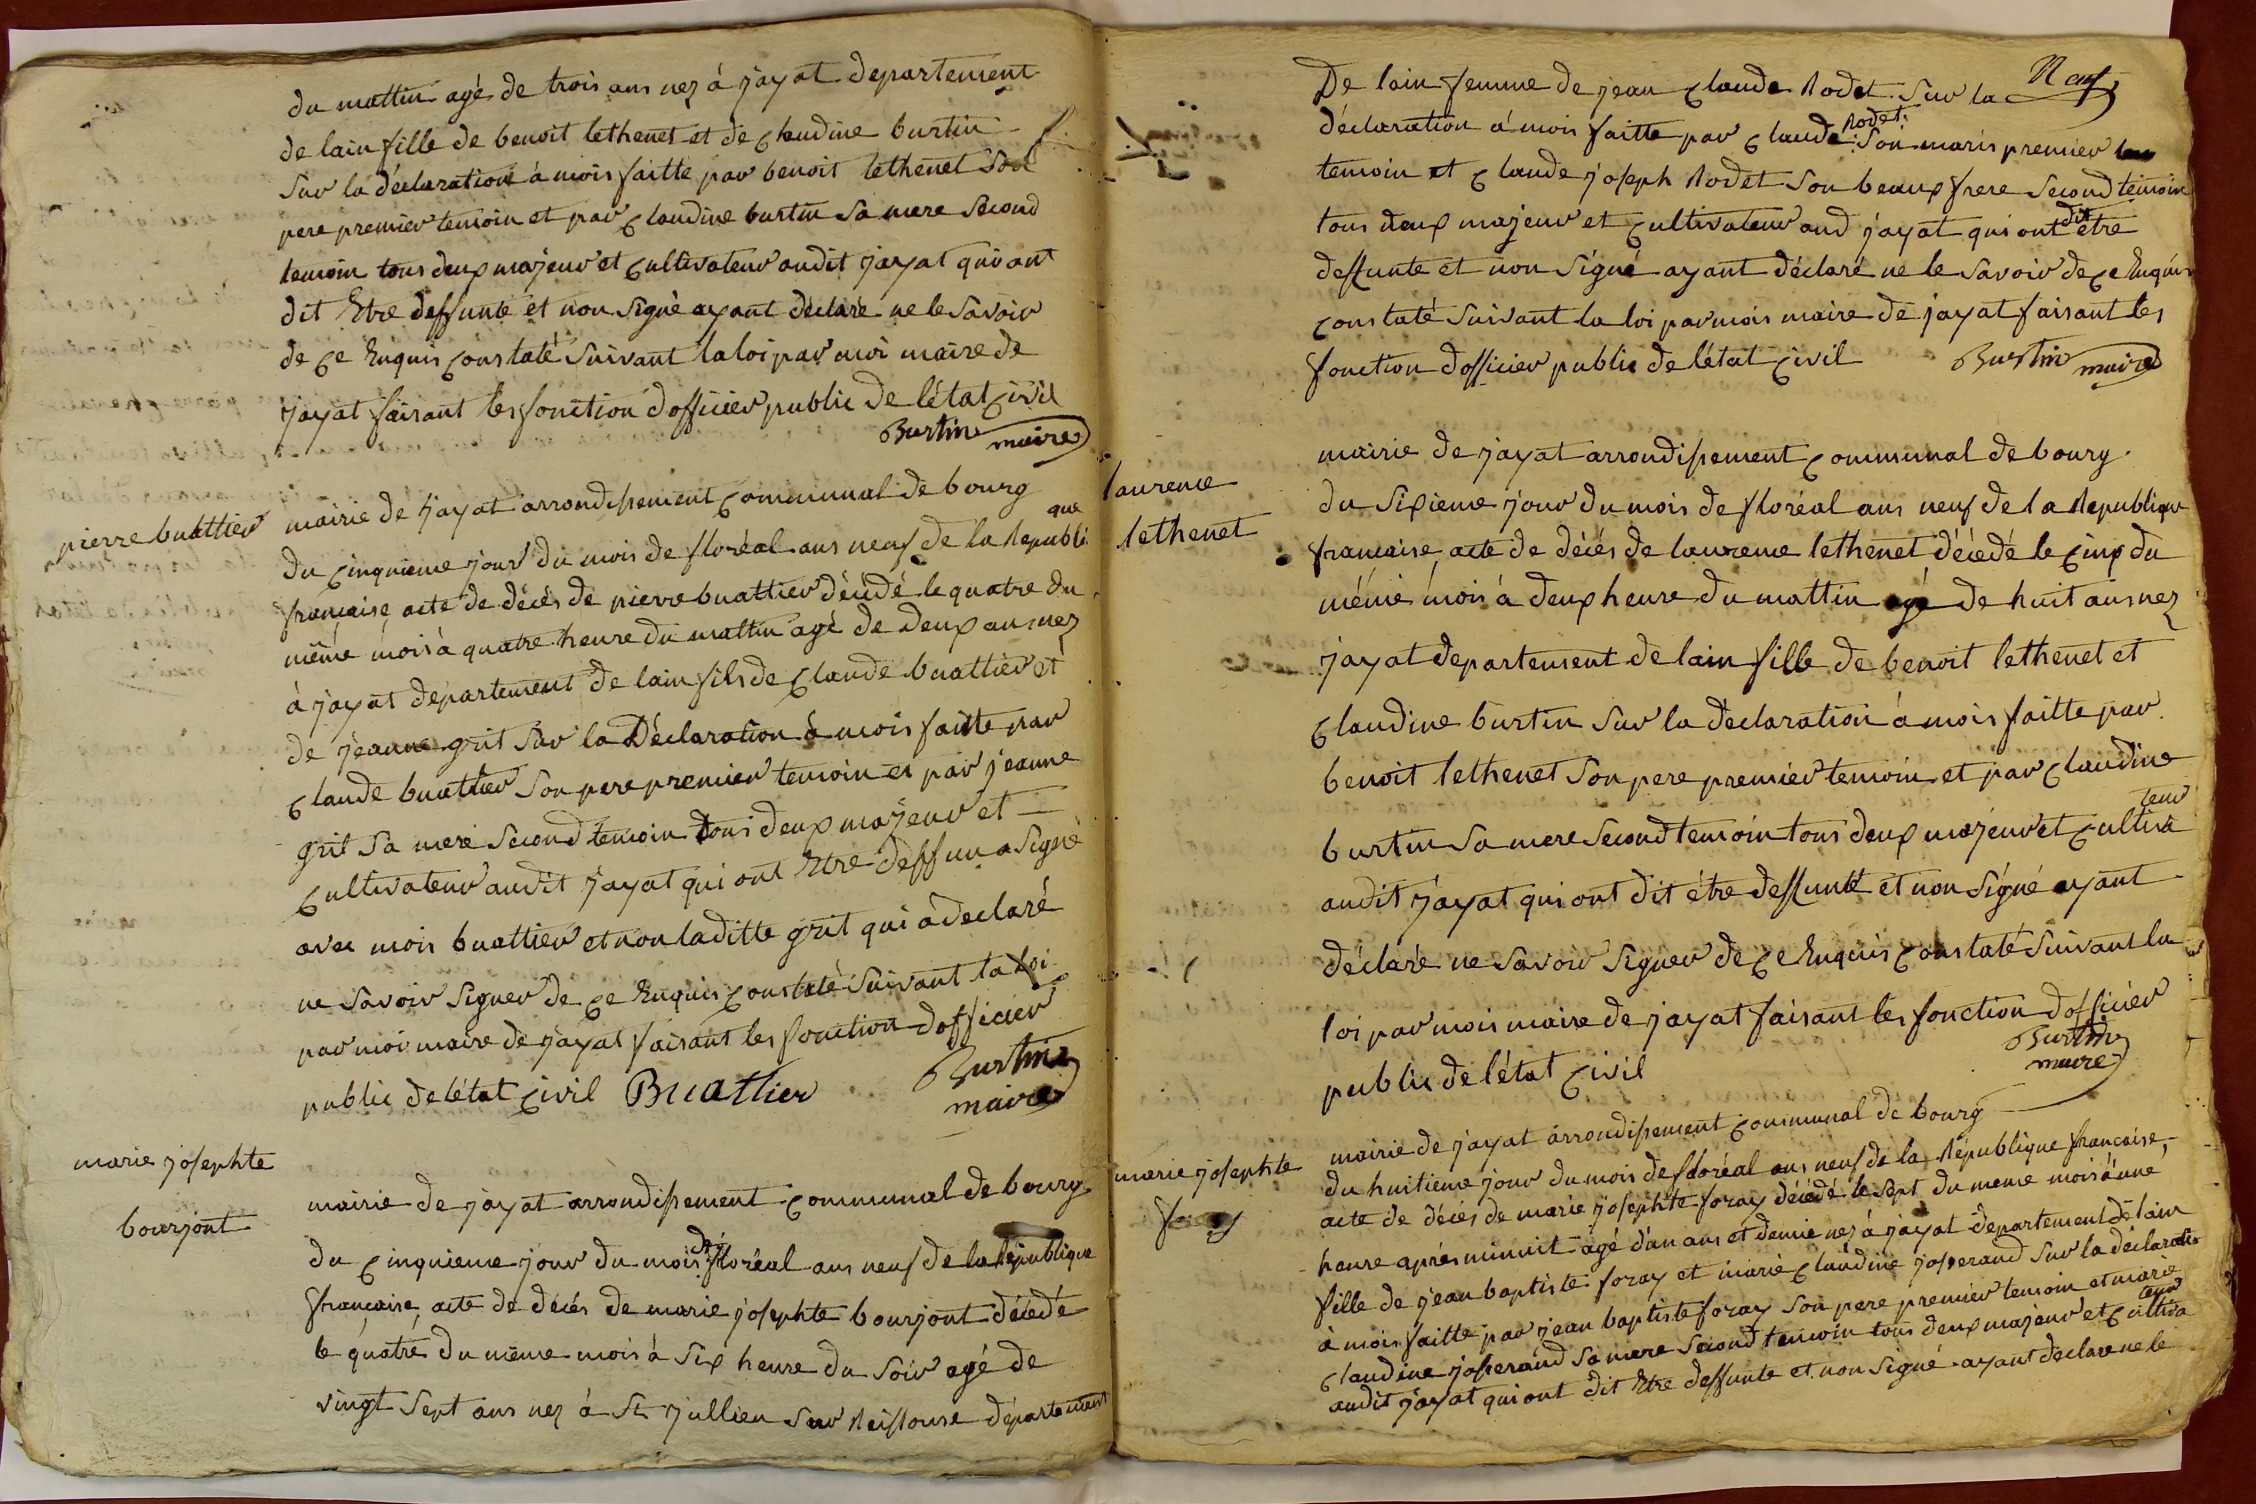 du mattin agé de trois ans nez á jayat departement
de lain fille de benoit lethenet et de claudine burtin
sur la déclaration á mois faitte par benoit lethenet son
pere premier temoin et par claudine burtin sa mere second
temoin tous deux majeur et cultivateur audit jayat qui ont
dit Etre deffunte et non signé ayant déclaré ne le savoir
de ce Enquis constaté suivant la loi par moi maire de
jayat faisant les fonction dofficier public de létat civil
Burtin maire
pierre buattier
mairie de jayat arrondissement communal de bourg
du cinquieme jour du mois de floréal ans neuf de la Republi
que
francaise acte de décés de pierre buattier décédé le quatre du
même mois à quatre heure du mattin agé de deux ans nez
á jayat departement de lain fils de claude buattier et
de jeanne grit sur la Déclaration á mois faitte par
claude buattier son pere premier temoin et par jeanne
grit sa mere second temoin tous deux majeur et
cultivateur audit jayat qui ont Etre deffun a signé
avec mois buattier et non laditte grit qui á declaré
ne savoir signer de ce Enquis constaté suivant la loi
par moi maire de jayat faisant les fonction dofficier
public de létat civil Buattier Burtin
maire
marie josephte
bourjont
mairie de jayat arrondissement communal de bourg
du cinquieme jour du mois de floréal ans neuf de la République
francaise, acte de décés de marie josephte bourjont décédé
le quatre du même mois à six heure du soir agé de
vingt sept ans nez á St jullien sur Reissouse département
Neuf
De lain femme de jean claude Rodet sur la
déclaration á mois faitte par claude Rodet son maris premier
temoin et claude joseph Rodet son beaux frere second temoin
tous deux majeur et cultivateur aud jayat qui ont dit etre
deffunte et non signé ayant déclaré ne le savoir de ce Enquis
constaté suivant la loi par mois maire de jayat faisant les
fonction dofficier public de létat civil Burtin maire
laurence
lethenet
mairie de jayat arrondissement communal de bourg.
du sixieme jour du mois de floréal ans neuf de la Republique
francaise acte de décés de laurence lethenet décédé le cinq du
même mois á deux heure du mattin agé de huit ans nez
jayat departement de lain fille de benoit lethenet et
claudine burtin sur la declaration á mois faitte par
benoit lethenet son pere premier temoin et par claudine
burtin sa mere second temoin tous deux majeur et cultiva
teur
audit jayat qui ont dit étre deffunte et non signé ayant
déclaré ne savoir signer de ce Enquis constaté suivant la
loi par mois maire de jayat faisant les fonction dofficier
public de létat civil Burtin
maire
marie josephte
foray
mairie de jayat arrondissement communal de bourg
du huitieme jour du mois de floréal ans neuf de la République francaise,
acte de décés de marie josephte foray décédé le sept du meme mois á une
heure aprés minuit agé d'un ans et demie nez á jayat departement de lain
fille de jean baptiste foray et marie claudine josserand sur la déclaratio
á mois faitte par jean baptiste foray son pere premier temoin et marie
claudine josserand sa mere second temoin tous deux majeur et cultiva
teur
audit jayat qui ont dit Etre deffunte et non signé ayant declare ne le